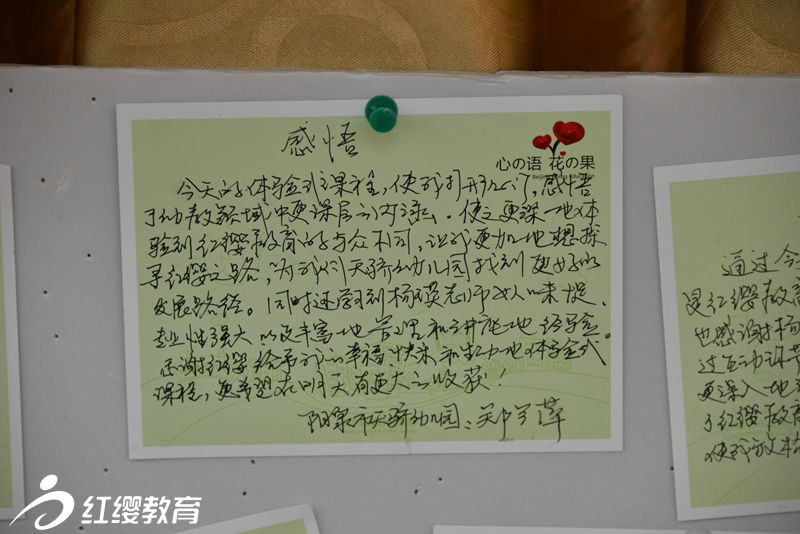 感悟
心の语 花の果
今天的体验式课程,使我打开心门,感悟
了幼教领域中更深层的内涵。使之更深一地体
验到红缨教育的与众不同,让我更加地想探
寻红缨之路,为我们天骄幼儿园找到更好的
发展路径。同时还学到杨瑛老师
专业性强大以及丰富地 地经验。
感谢红缨给予我的幸福快来和 地体验式
课程,更希望在明天有更大的收获!
阳泉市天骄幼儿园:郑
通过今
灵红缨教
也感谢杨
过互动环节
更深入地
了红缨教育
使我放
红缨教育